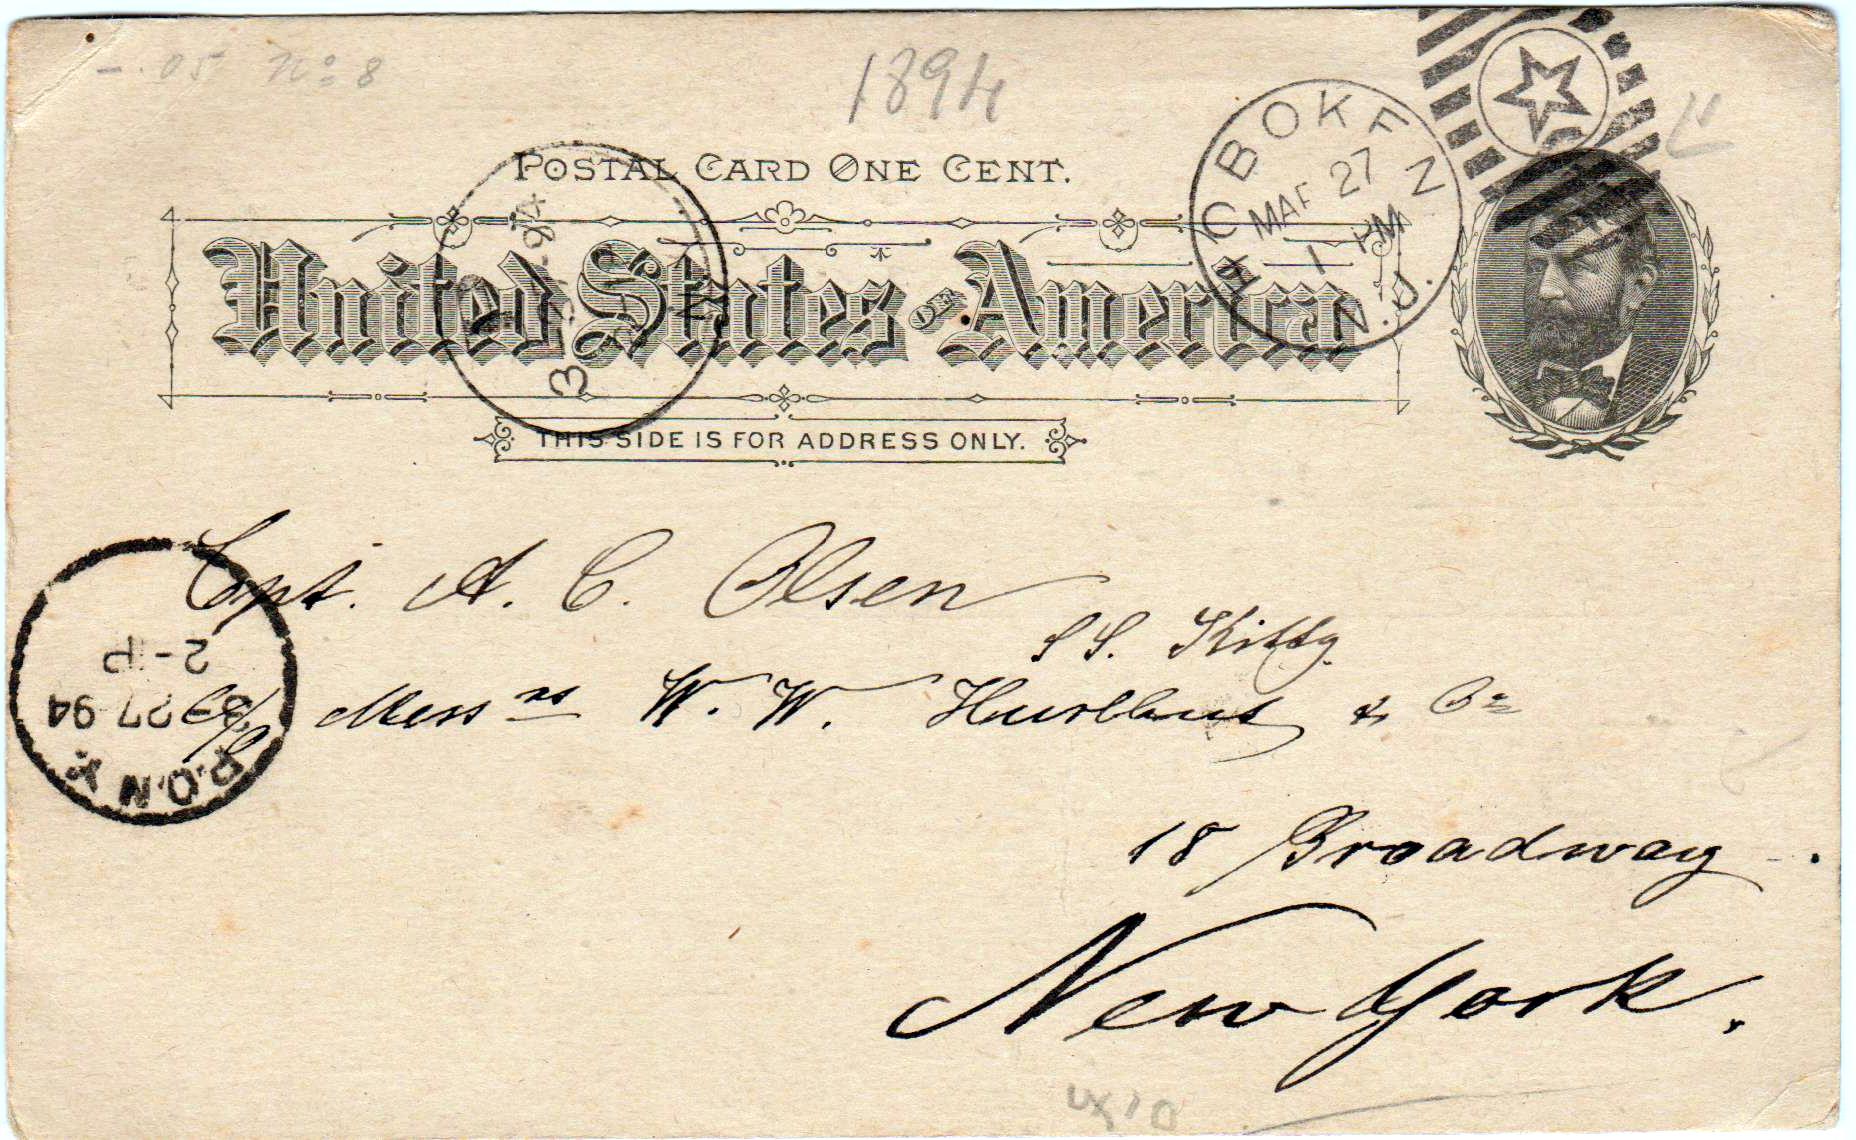 1894
No 8
POSTAL CARD ONE CENT.
United States of America
THIS SIDE IS FOR ADDRESS ONLY.
HOBOKEN N.J.
MAR 27
1 PM
P.O.N.Y.
3-27 94
2-P
Capt. A. C. Olsen
SS. Kitty
c/o Messrs W. W. Hurlbut & Co
18 Broadway
New York.